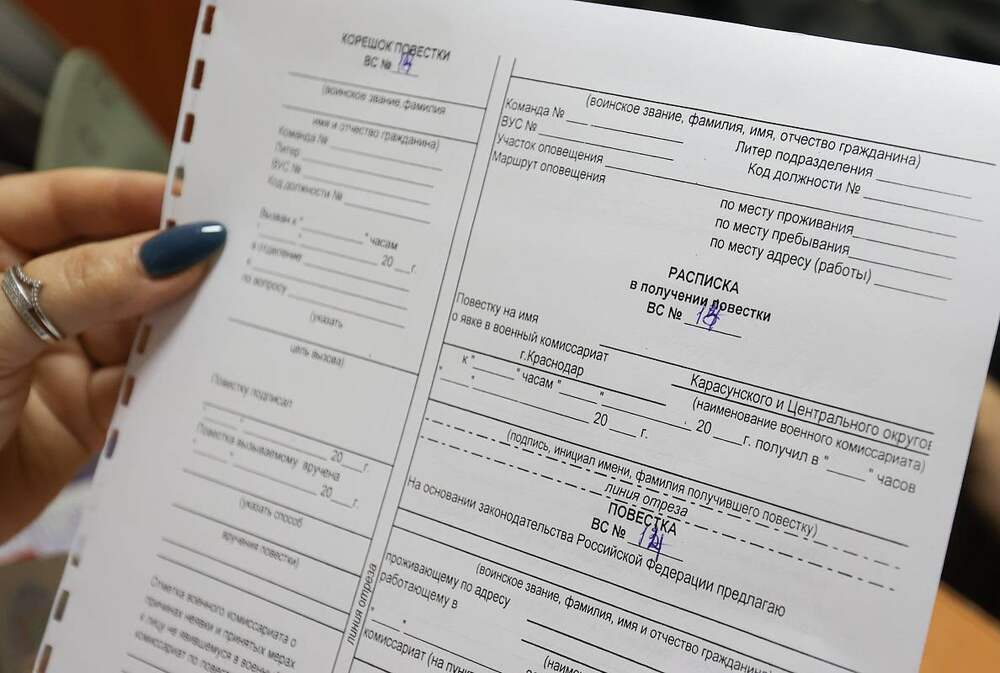 КОРЕШОК ПОВЕСТКИ
ВС №
(воинское звание, фамилия
имя и отчество гражданина)
Команда №
Литер
ВУС №
Код должности №
Вызван к " " часам
" " 20 г.
в отделение
по вопросу
(указать
цель вызова)
Повестку подписал
" " 20 г.
Повестка вызываемому вручена
" " 20 г.
(указать способ
вручения повестки)
Отметка военного комиссариата о
причинах неявки и принятых мерах
к лицу не явившемуся в военный
комиссариат по
линия отреза
(воинское звание, фамилия, имя, отчество гражданина)
Команда № Литер подразделения
ВУС № Код должности №
Участок оповещения
Маршрут оповещения
по месту проживания
по месту пребывания
по месту адресу (работы)
РАСПИСКА
в получении повестки
ВС №
Повестку на имя
о явке в военный комиссариат Карасунского и Центрального округов
г.Краснодар (наименование военного комиссариата)
к " " часам " " 20 г. получил в " " часов
" " 20 г.
(подпись, инициал имени, фамилия получившего повестку)
линия отреза
ПОВЕСТКА
ВС №
На основании законодательства Российской Федерации предлагаю
(воинское звание, фамилия, имя и отчество гражданина)
проживающему по адресу
работающему в
комиссариат (на